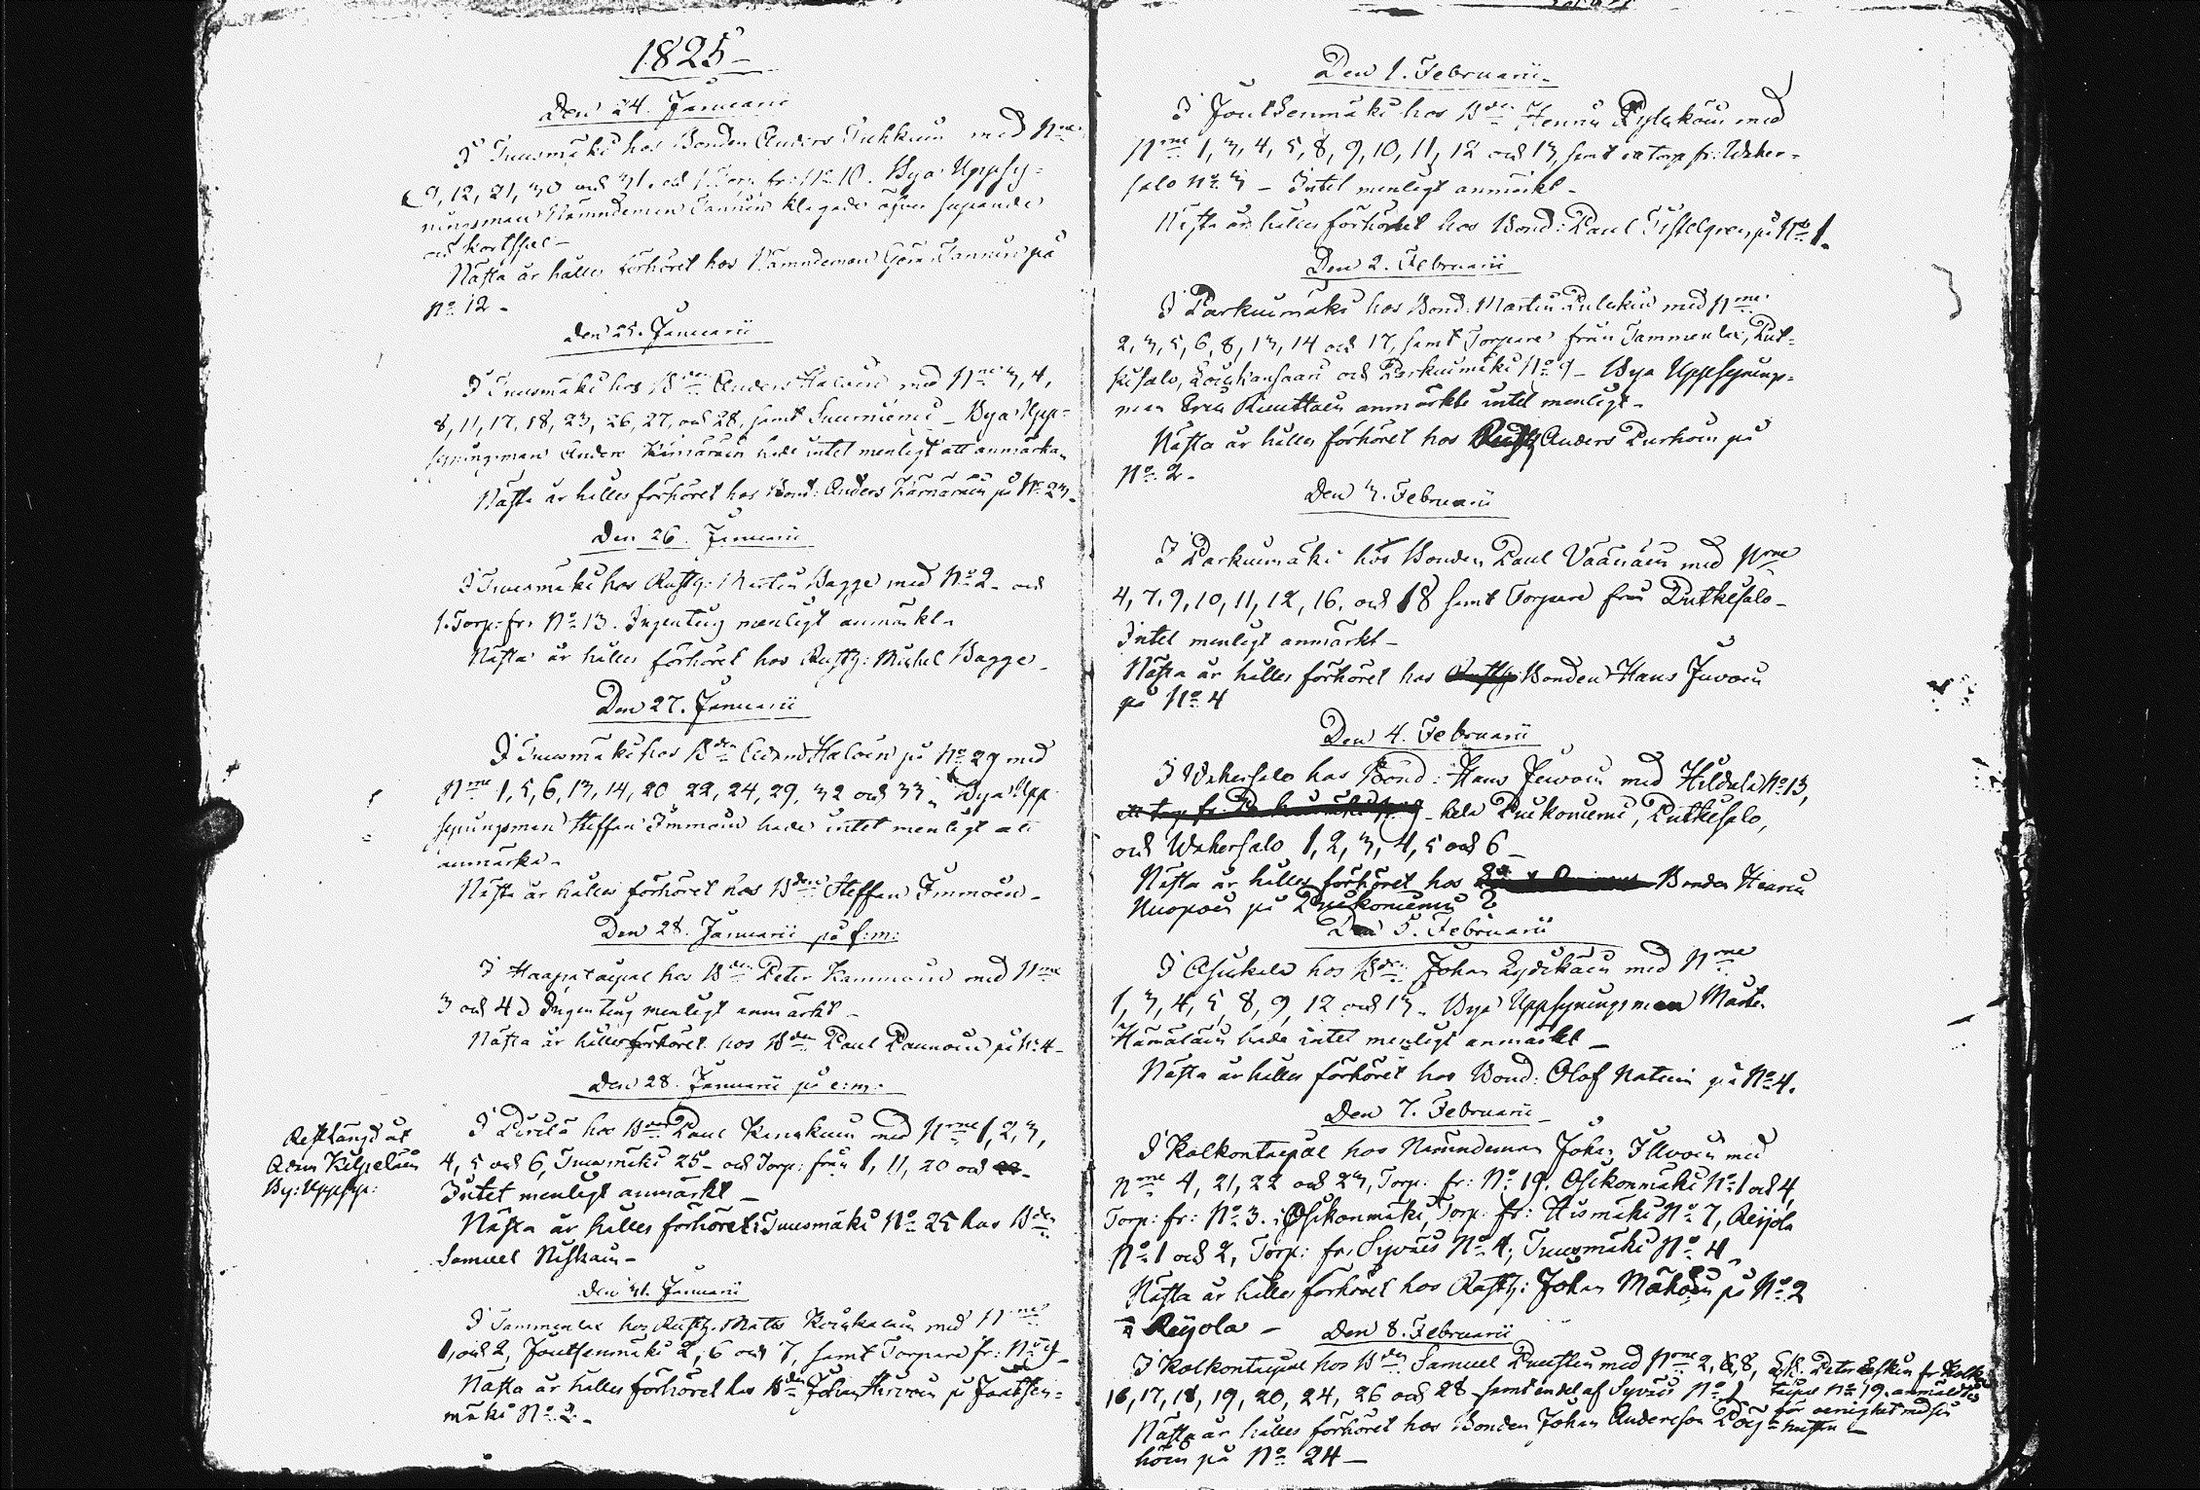 1825
Den 24. Januarii
I Tuusmäki hos Bonden Anders Tuhkuin med Nrne
9, 12, 21, 30 och 31. och 1 Torp. fr: No 10. Bya Uppsy=
ningsman Nämndeman Tannin klagade öfver supande
och kortspel
Nästa år hålles förhöret hos Nämndeman Göran Tannin på
No 12
den 25. Januarii
I Tuusmäki hos Bden Anders Haloin med Nrne 3, 4,
8, 11, 17, 18, 23, 26, 27, och 28, samt Suurniemi _ Bya Upp=
syningsman Anders Kärnäräin hade intet menligt att anmärka
Nästa år hålles förhöret hos Bond: Anders Kärnäräin på No 23
den 26. Januarii
I Tuusmäki hos Rusth: Martin Bagge med No 2 och
1. Torp: fr: No 13. Ingenting menligt anmärkt
Nästa år hålles förhöret hos Rusth: Michel Bagge
Den 27. Januarii
I Tuusmäki hos Bden Haloin på No 29 med
Nrne 1, 5, 6, 13, 14, 20 22, 24, 29, 32 och 33 Bya Upp
syningsman Steffan Immoin hade intet menligt att
anmärka
Nästa år hålles förhöret hos Bden Steffan Immoin
Den 28. Januarii på f:m:
I Haapataipal hos Bden Peter Kammoin med Nrne
3 och 4 Ingenting menligt anmärkt
Nästa år hålles förhöret hos Bden Paul Paunoin på No 4
den 28. Januarii på e:m:
I Pirilä hos Bden Paul med Nrne 1, 2, 3,
4, 5 och 6, Tuusmäki 25 och Torp: från 1, 11, 20 och
Intet menligt anmärkt
Nästa år hålles förhöret i Tuusmäki No 25 hos Bden
Samuel Niskain
Restlängd åt
Adam Kilpeläin
By: Uppsyn:
den 31. Januarii
I Tammenlax hos Rusth. Mats med Nrne
1, och 2, Joutsenmäki 2, 6 och 7, samt Torpare fr: No 9
Nästa år hålles förhöret hos Bden Johan Hirvoin på Joutsen=
mäki No 2
Den 1. Februarii
I Joutsenmäki hos Bden Henric Pylckäin med
Nrne 1, 3, 4, 5, 8, 9, 10, 11, 12 och 13, samt en torp fr: Waher=
salo No 3 Intet menligt anmärkt
Nästa år hålles förhöret hos Bond: Paul Tistelgren på No 1.
Den 2. Februarii
I Parkuinmäki hos Bond. Martin Pulckin med Nrne
2, 3, 5, 6, 8, 13, 14 och 17, samt Torpare från Tammenlax, Put=
kisalo, och Parkuimäki No 9 Bya Uppsynings=
man Eric Ruuttain anmärkte intet menligt
Nästa år hålles förhöret hos Anders Purhoin på
No 2
Den 3. Februarii
I Parkuimäki hos Bonden Paul Väänäin med Nrne
4, 7, 9, 10, 11, 12, 16, och 18 samt Torpare från Putkisalo
Intet menligt anmärkt
Nästa år hålles förhöret hos Bonden Hans Juvoin
på No 4
Den 4. Februarii
I Wahersalo hos Bond: Hans Juvoin med Hildula No 13,
hela Ruokoniemi, Putkisalo,
och Wahersalo 1, 2, 3, 4, 5 och 6
Nästa år hålles förhöret hos Bonden Henric
Nuopoin på Ruokoniemi 2
Den 5. Februarii
I Asickala hos Bden Johan Lyickäin med Nrne
1, 3, 4, 5, 8, 9, 12 och 13. Bya Uppsyningsman Mårten
Hämäläin hade intet menligt anmärkt
Nästa år hålles förhöret hos Bond: Olof Natuin på No 4.
Den 7. Februarii
I Kolkontaipal hos Nämndeman Johan Ilvoin med
Nrne 4, 21, 22 och 23, Torp. fr: No 19. Osikonmäki No 1 och 4,
Torp: fr: No 3. i Osikonmäki, Torp. fr: Hismäki No 7, Reijola
No 1 och 2, Torp: fr: Syväis No 4, Tuusmäki No 4
Nästa år hålles förhöret hos Rusth: Johan Mähöin på No 2
i Reijola
Den 8. Februarii
I Kolkontaipal hos Bden Samuel Puustin med Nrne 2, 6, 8,
16, 17, 18, 19, 20, 24, 26 och 28 samt en del af Syväis No 1
Peter Eskin fr Kolkon
taipal No 19. anmäldtes
för oenighet med sin
hustru
Nästa år hålles förhöret hos Bonden Johan Andersson Pöy=
höin på No 24